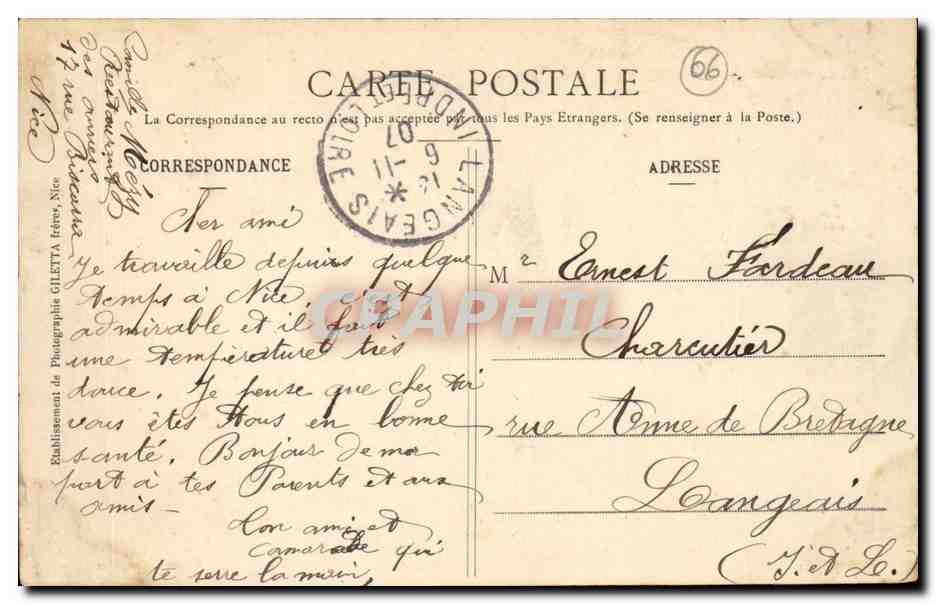 CARTE POSTALE
66
La Correspondance au recto n'est pas acceptée par tous les Pays Etrangers. (Se renseigner à la Poste.)
CORRESPONDANCE
ADRESSE
LANGEAIS
INDRE ET LOIRE
6 -11
07
Camille Méry
Restaurant
des
17 rue Biscarra
Nice
Etablissement de Photographie GILETTA frères, Nice
Cher ami
Je travaille depuis quelque
temps à Nice, c'est
admirable et il fait
une température très
douce. Je pense que chez toi
vous êtes tous en bonne
santé. Bonjour de ma
part à tes Parents et aux
amis -
Ton ami et
camarade qui
te serre la main,
Mr Ernest Fardeau
Charcutier
rue Anne de Bretagne
Langeais
(I. et L.)
CPAPHIL